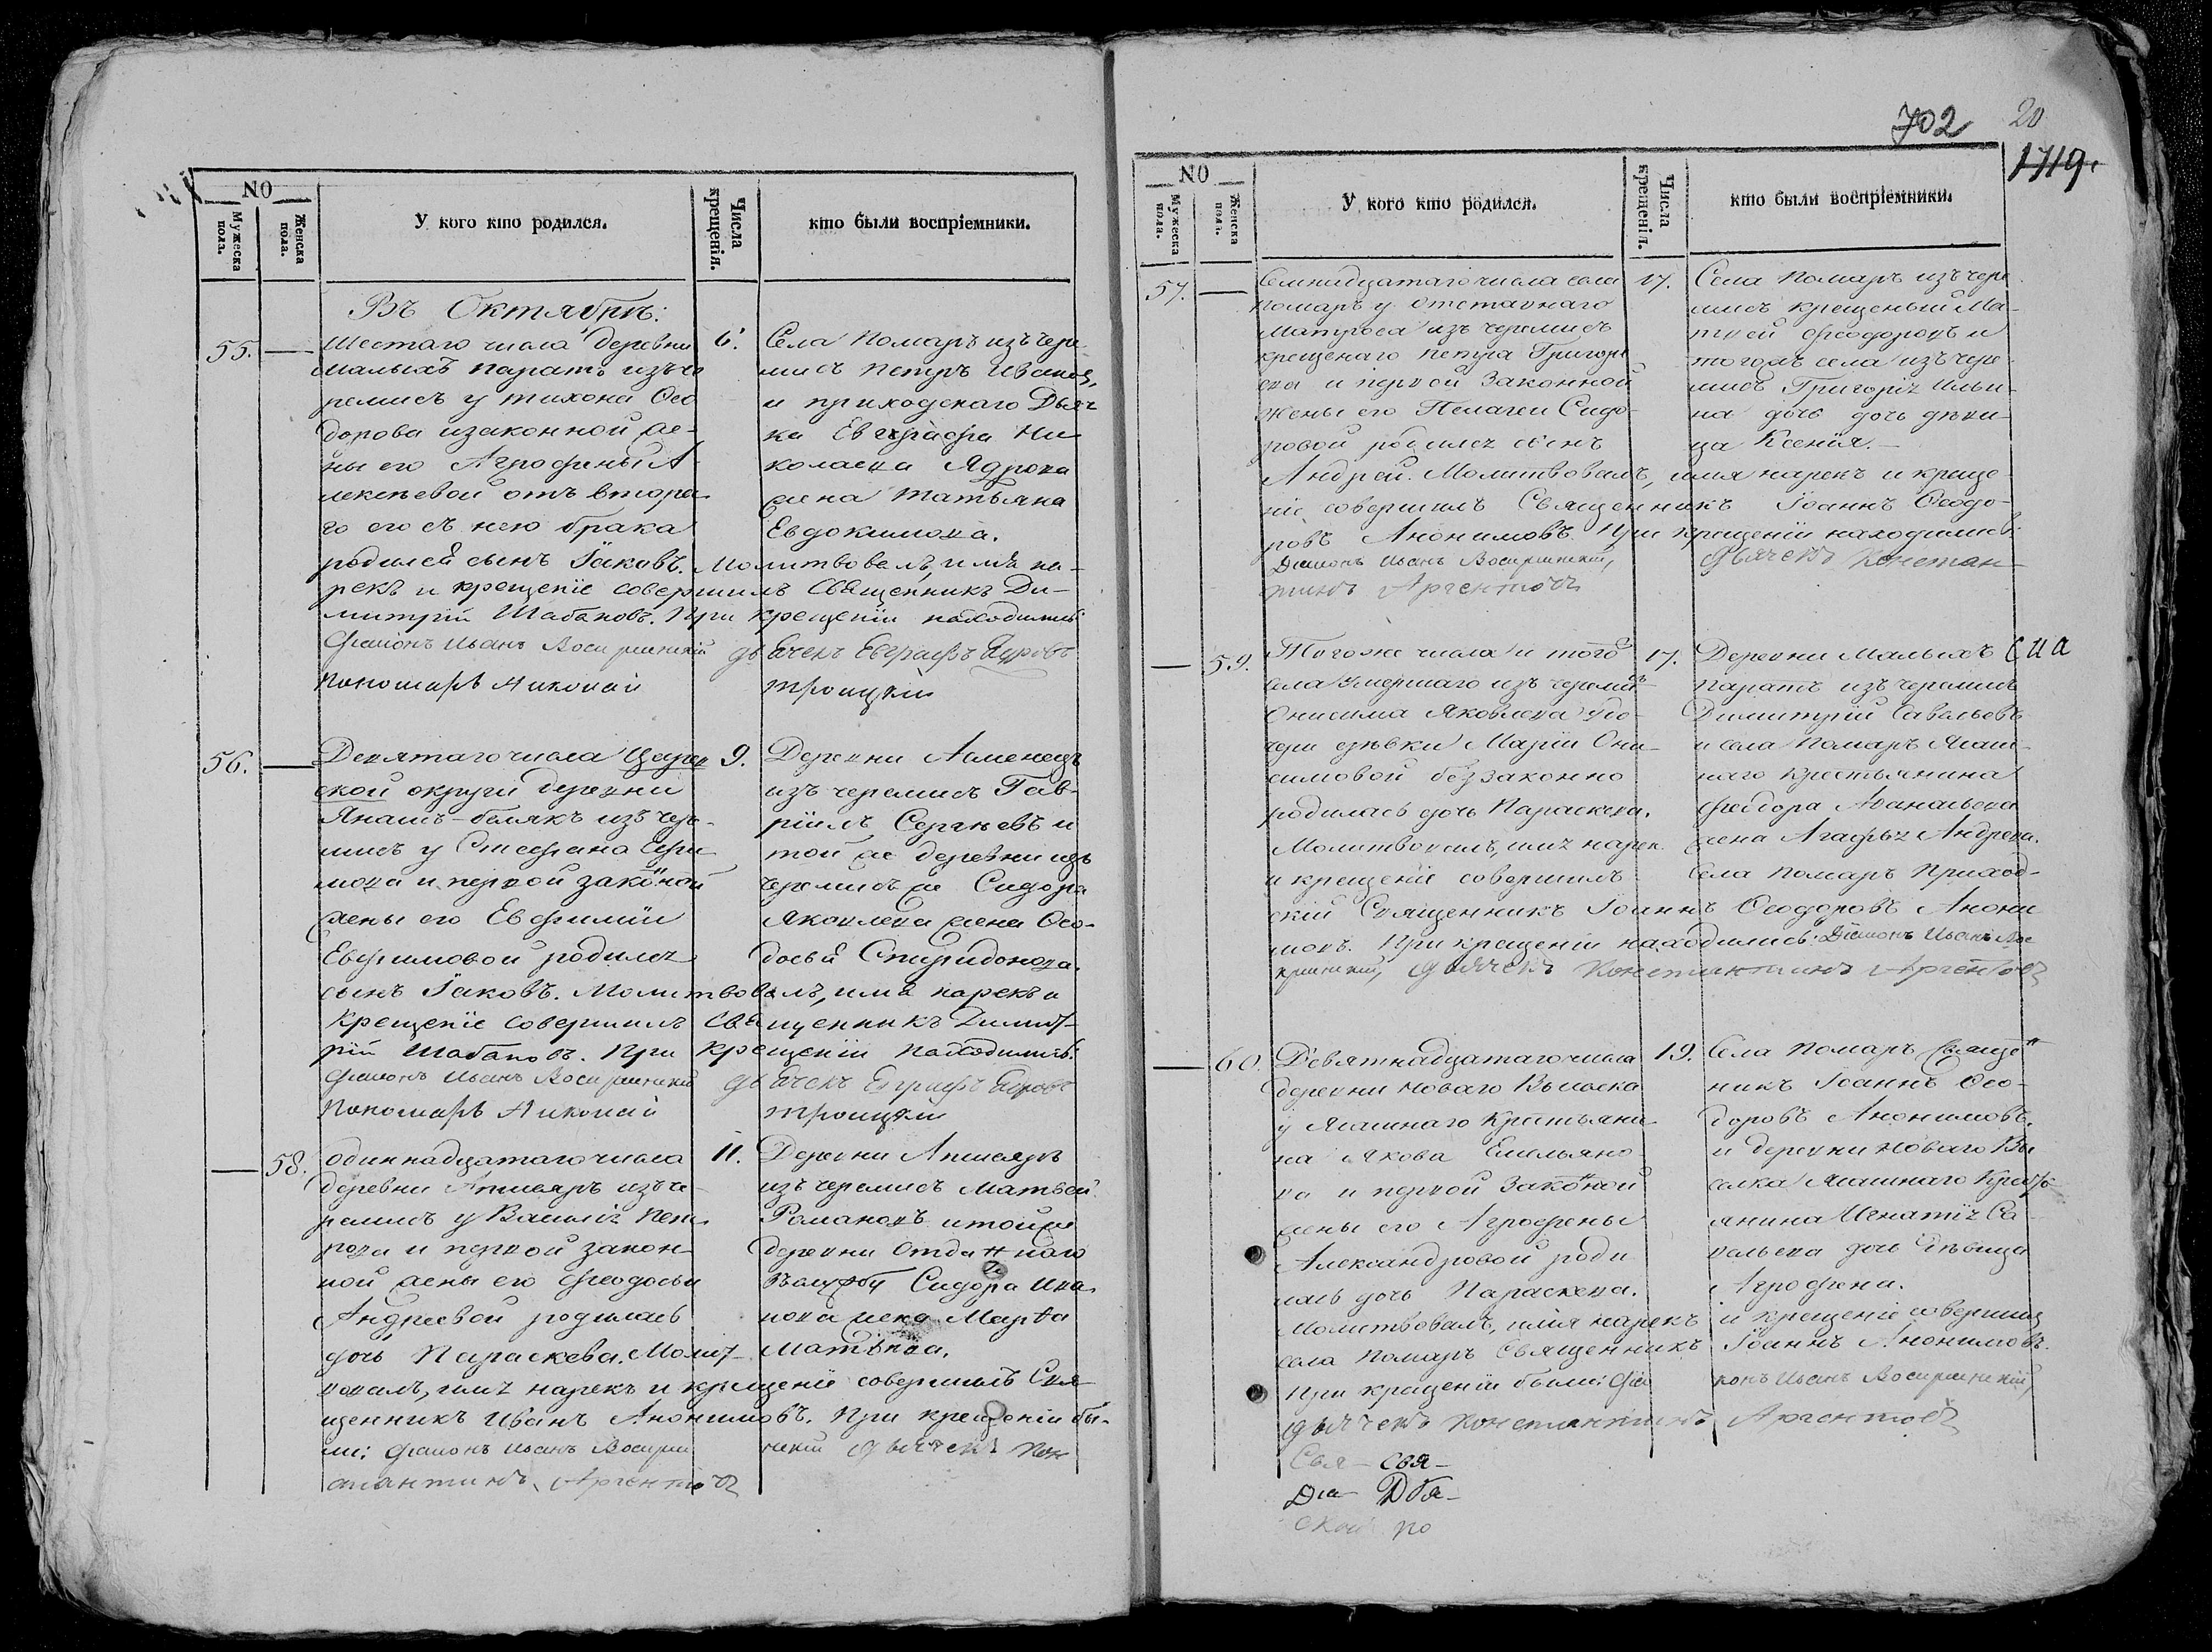 NO
Мужеска пола.
Женска пола.
У кого кто родился.
Числа крещенія.
кто были воспріемники.
Въ Октябрѣ:
55.
Шестаго числа деревни
Малыхъ Паратъ изъ че
ремисъ у Тихона Ѳео
дорова и законной же-
ны его Агрофены А-
лексѣевой отъ второ
го его съ нею брака
родился сынъ Іаковъ. Молитвовалъ, имя на-
рекъ и крещеніе совершилъ Священникъ Ди-
митрій Шабановъ. При крещеніи находились
Діаконъ Иванъ
дьячекъ Евграфъ Ядровъ
Пономарь Николай
Троицкій
6.
Села Помаръ изъ чере
мисъ Петръ Ивановъ,
и приходскаго Дьяч
ка Евграфа Ни
колаева Ядрова
жена Татьяна
Евдокимова.
56.
Девятаго числа Царев
ской округи деревни
Янашъ-беляkъ изъ чере-
мисъ у Стефана Ефи
мова и первой законной
жены его Евфиміи
Евфимовой родился
сынъ Іаковъ. Молитвовалъ, имя нарекъ и
крещеніе совершилъ священникъ Димит-
рій Шабановъ. При крещеніи находились:
Діаконъ Иванъ
дьячекъ Евграфъ Ядровъ
Пономарь Николай
Троицкій
9.
Деревни
изъ черемисъ Гав-
ріилъ Сергѣевъ и
той же деревни изъ
черемисъ же Сидора
Яковлева жена Ѳео-
досья Спиридонова.
58.
Одиннадцатаго числа
деревни Апшаръ изъ че-
ремисъ у Василія Пет
рова и первой закон-
ной жены его Ѳеодосьи
Андреевой родилась
дочь Параскева. Молит-
вовалъ, имя нарекъ и крещеніе совершилъ Свя
щенникъ Иванъ Анонимовъ. При крещеніи бы-
ли: Діаконъ Иванъ
дьячекъ Кон
стантинъ Аргентовъ
11.
Деревни Апшаръ
изъ черемисъ Матвей
Романовъ и той же
деревни Отданнаго
въ службу Сидора Ива
нова жена Марѳа
Матвѣева.
702
20
1719.
NO
Мужеска пола.
Женска пола.
У кого кто родился.
Числа крещенія.
кто были воспріемники.
57.
Семнадцатаго числа села
Помаръ у отставнаго
Матроса изъ черемисъ
крещенаго Петра Григорь
ева и первой законной
жены его Пелагеи Сидо-
ровой родился сынъ
Андрей. Молитвовалъ, имя нарекъ и креще-
ніе совершилъ Священникъ Іоаннъ Ѳеодо-
ровъ Анонимовъ. При крещеніи находились:
Діаконъ Иванъ
Дьячекъ Констан-
тинъ Аргентовъ
17.
Села Помаръ изъ чере
мисъ крещеный Ма-
твей Ѳеодоровъ и
тогожъ села изъ чере-
мисъ Григорія Ильи-
на дочь дочь дѣви-
ца Ксенія.
59.
Тогоже числа и того
села умершаго изъ черемисъ
Онисима Яковлева у до-
чери дѣвки Маріи Они-
симовой беззаконно
родилась дочь Параскева.
Молитвовалъ, имя нарек
и крещеніе совершилъ Села Помаръ Приход-
скій Священникъ Іоаннъ Ѳеодоровъ Анони
мовъ. При крещеніи находились: Діаконъ Иванъ
дьячекъ Константинъ Аргентовъ
17.
Деревни Малыхъ
Паратъ изъ черемисъ
Димитрій Савельевъ
и села Помаръ Ясаш-
наго Крестьянина
Феодора Аѳанасьева
жена Агафья Андреева.
60.
Девятнадцатаго числа
деревни Новаго Выселка
у Ясашнаго Крестьяни
на Якова Емельяно-
ва и первой законной
жены его Агрофены
Александровой роди
лась дочь Параскева.
Молитвовалъ, имя нарекъ и крещеніе совершилъ
села Помаръ Священникъ Іоаннъ Анонимовъ.
При крещеніи были: Діа конъ Иванъ
дьячекъ Константинъ Аргентовъ
19.
Села Помаръ Священ
никъ Іоаннъ Ѳео-
доровъ Анонимовъ.
и деревни Новаго Вы
селка Ясашнаго Кресть
янина Игнатія Са
вельева дочь Дѣвица
Агрофена.
Свя- Свя-
Діа- Дья-
ской по